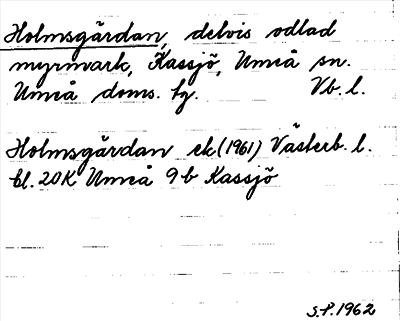 Holmsgärdan, delvis odlad
myrmark, Kassjö, Umeå sn.
Umeå doms. tg. Vb. l.
Holmsgärdan ek (1961) Västerb. l.
bl. 20K Umeå 9b Kassjö
S.P. 1962